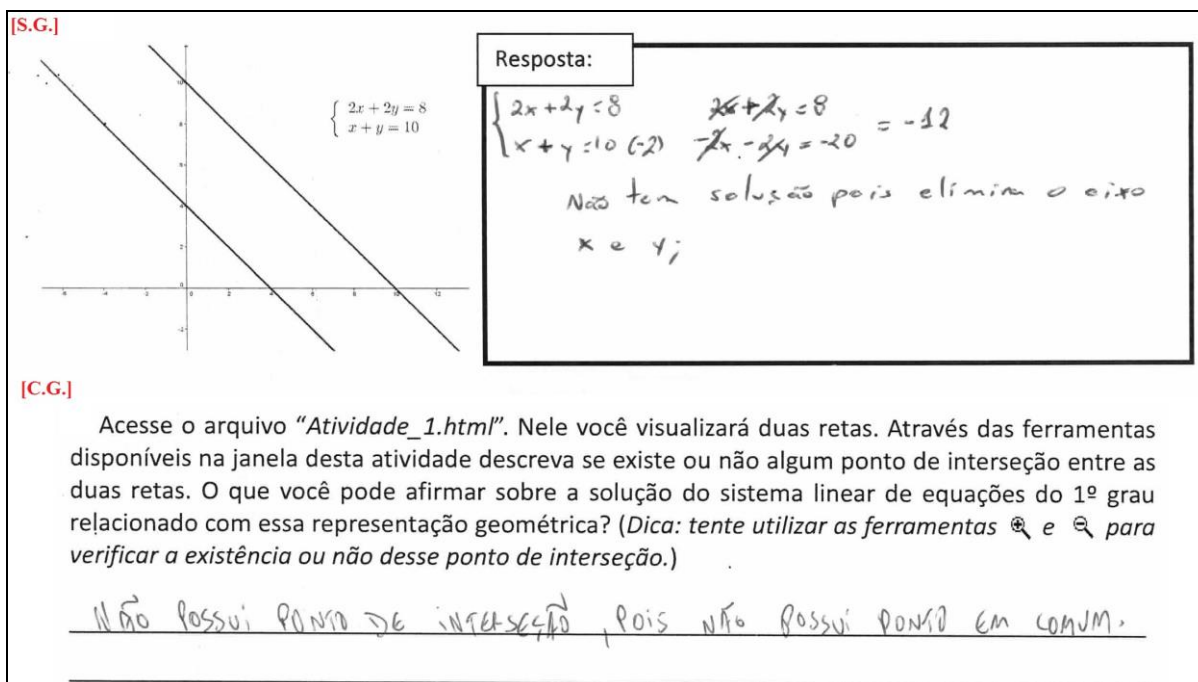 [S.G.]
{ 2x + 2y = 8
x + y = 10
10
8
6
4
2
0
-2
-6 -4 -2 0 2 4 6 8 10 12
Resposta:
{ 2x + 2y = 8 2x + 2y = 8
x + y = 10 (-2) -2x - 2y = -20 = -12
Não tem solução pois elimina o eixo
x e y;
[C.G.]
Acesse o arquivo “Atividade_1.html”. Nele você visualizará duas retas. Através das ferramentas
disponíveis na janela desta atividade descreva se existe ou não algum ponto de interseção entre as
duas retas. O que você pode afirmar sobre a solução do sistema linear de equações do 1º grau
relacionado com essa representação geométrica? (Dica: tente utilizar as ferramentas e para
verificar a existência ou não desse ponto de interseção.)
NÃO POSSUI PONTO DE INTERSECÇÃO, POIS NÃO POSSUI PONTO EM COMUM.